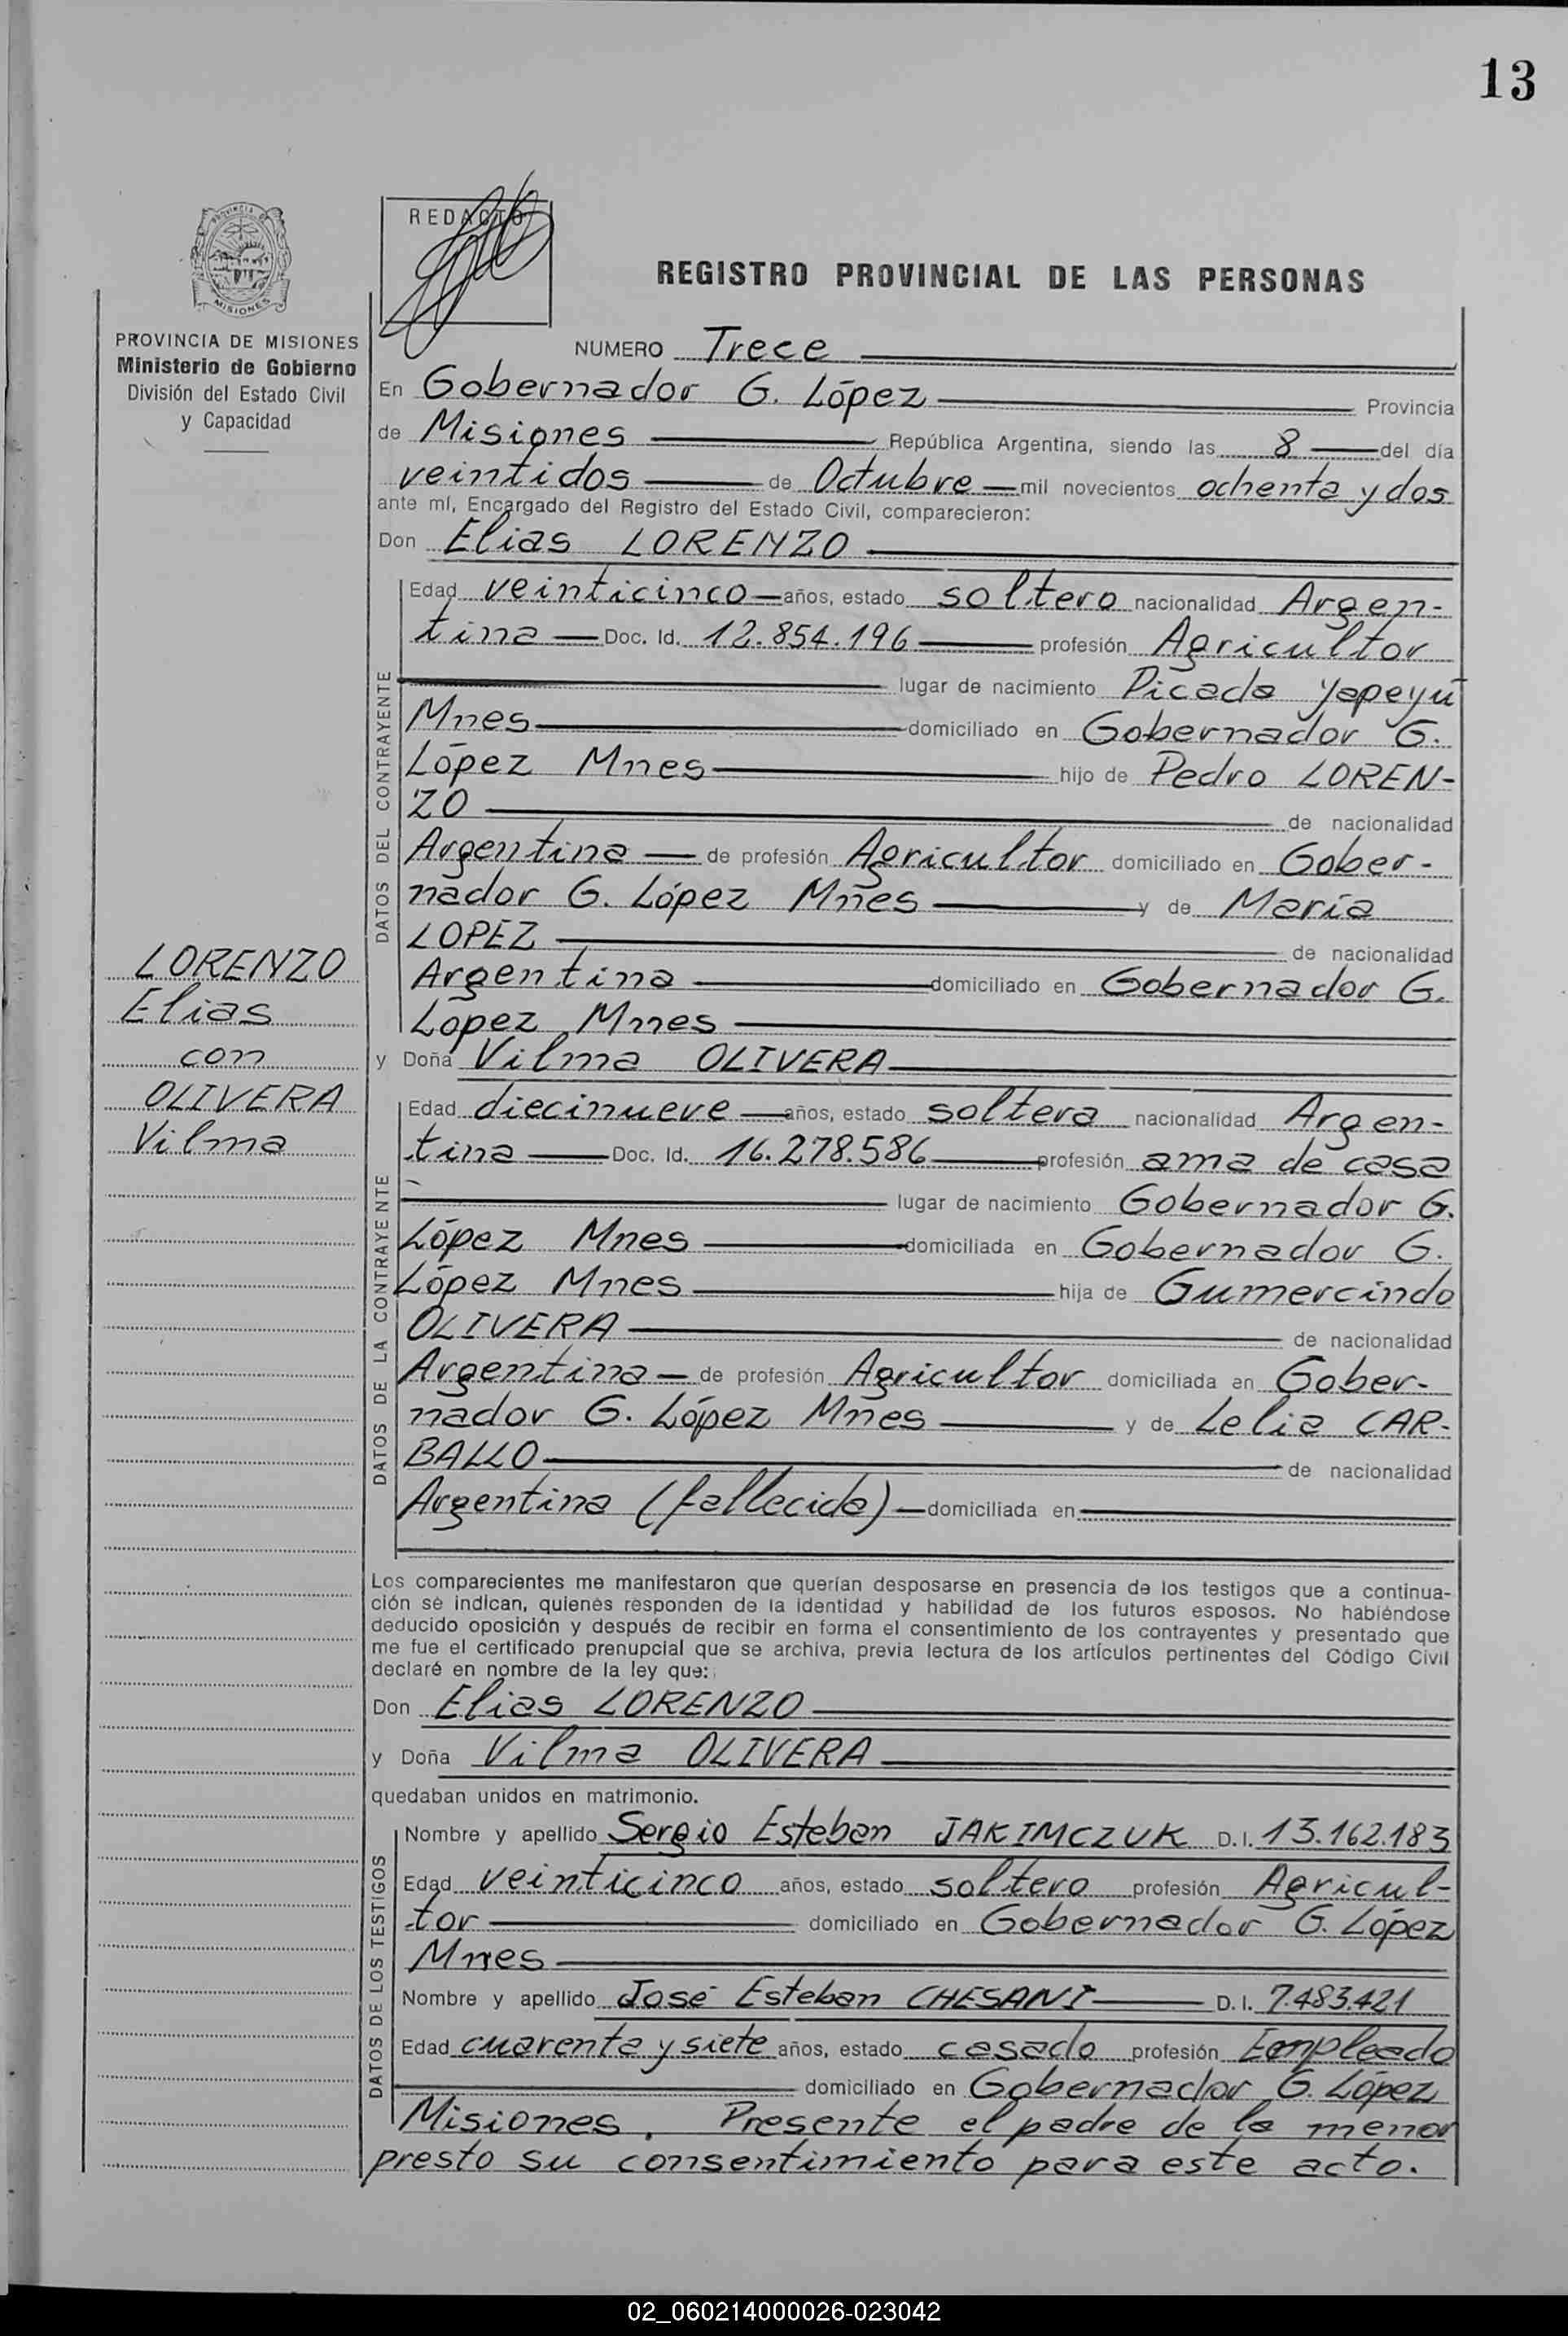 13
PROVINCIA DE
MISIONES
PROVINCIA DE MISIONES
Ministerio de Gobierno
División del Estado Civil
y Capacidad
LORENZO
Elias
con
OLIVERA
Vilma
REDACTO
REGISTRO PROVINCIAL DE LAS PERSONAS
NUMERO Trece
En Gobernador G. López Provincia
de Misiones República Argentina, siendo las 8 del día
veintidos de Octubre mil novecientos ochenta y dos
ante mí, Encargado del Registro del Estado Civil, comparecieron:
Don Elias LORENZO
DATOS DEL CONTRAYENTE
Edad veinticinco años, estado soltero nacionalidad Argen-
tina Doc. Id. 12.854.196 profesión Agricultor
lugar de nacimiento Picada Yapeyú
Mnes domiciliado en Gobernador G.
López Mnes hijo de Pedro LOREN-
ZO de nacionalidad
Argentina de profesión Agricultor domiciliado en Gober-
nador G. López Mnes y de María
LOPEZ de nacionalidad
Argentina domiciliado en Gobernador G.
López Mnes
y Doña Vilma OLIVERA
DATOS DE LA CONTRAYENTE
Edad diecinueve años, estado soltera nacionalidad Argen-
tina Doc. Id. 16.278.586 profesión ama de casa
lugar de nacimiento Gobernador G.
López Mnes domiciliada en Gobernador G.
López Mnes hija de Gumercindo
OLIVERA de nacionalidad
Argentina de profesión Agricultor domiciliada en Gober-
nador G. López Mnes y de Lelia CAR-
BALLO de nacionalidad
Argentina (fallecida) domiciliada en
Los comparecientes me manifestaron que querían desposarse en presencia de los testigos que a continua-
ción se indican, quienes responden de la identidad y habilidad de los futuros esposos. No habiéndose
deducido oposición y después de recibir en forma el consentimiento de los contrayentes y presentado que
me fue el certificado prenupcial que se archiva, previa lectura de los artículos pertinentes del Código Civil
declaré en nombre de la ley que:
Don Elias LORENZO
y Doña Vilma OLIVERA
quedaban unidos en matrimonio.
DATOS DE LOS TESTIGOS
Nombre y apellido Sergio Esteban JAKIMCZUK D.I. 13.162.183
Edad veinticinco años, estado soltero profesión Agricul-
tor domiciliado en Gobernador G. López
Mnes
Nombre y apellido José Esteban CHESANI D.I. 7.483.421
Edad cuarenta y siete años, estado casado profesión Empleado
domiciliado en Gobernador G. López
Misiones. Presente el padre de la menor
presto su consentimiento para este acto.
02_060214000026-023042